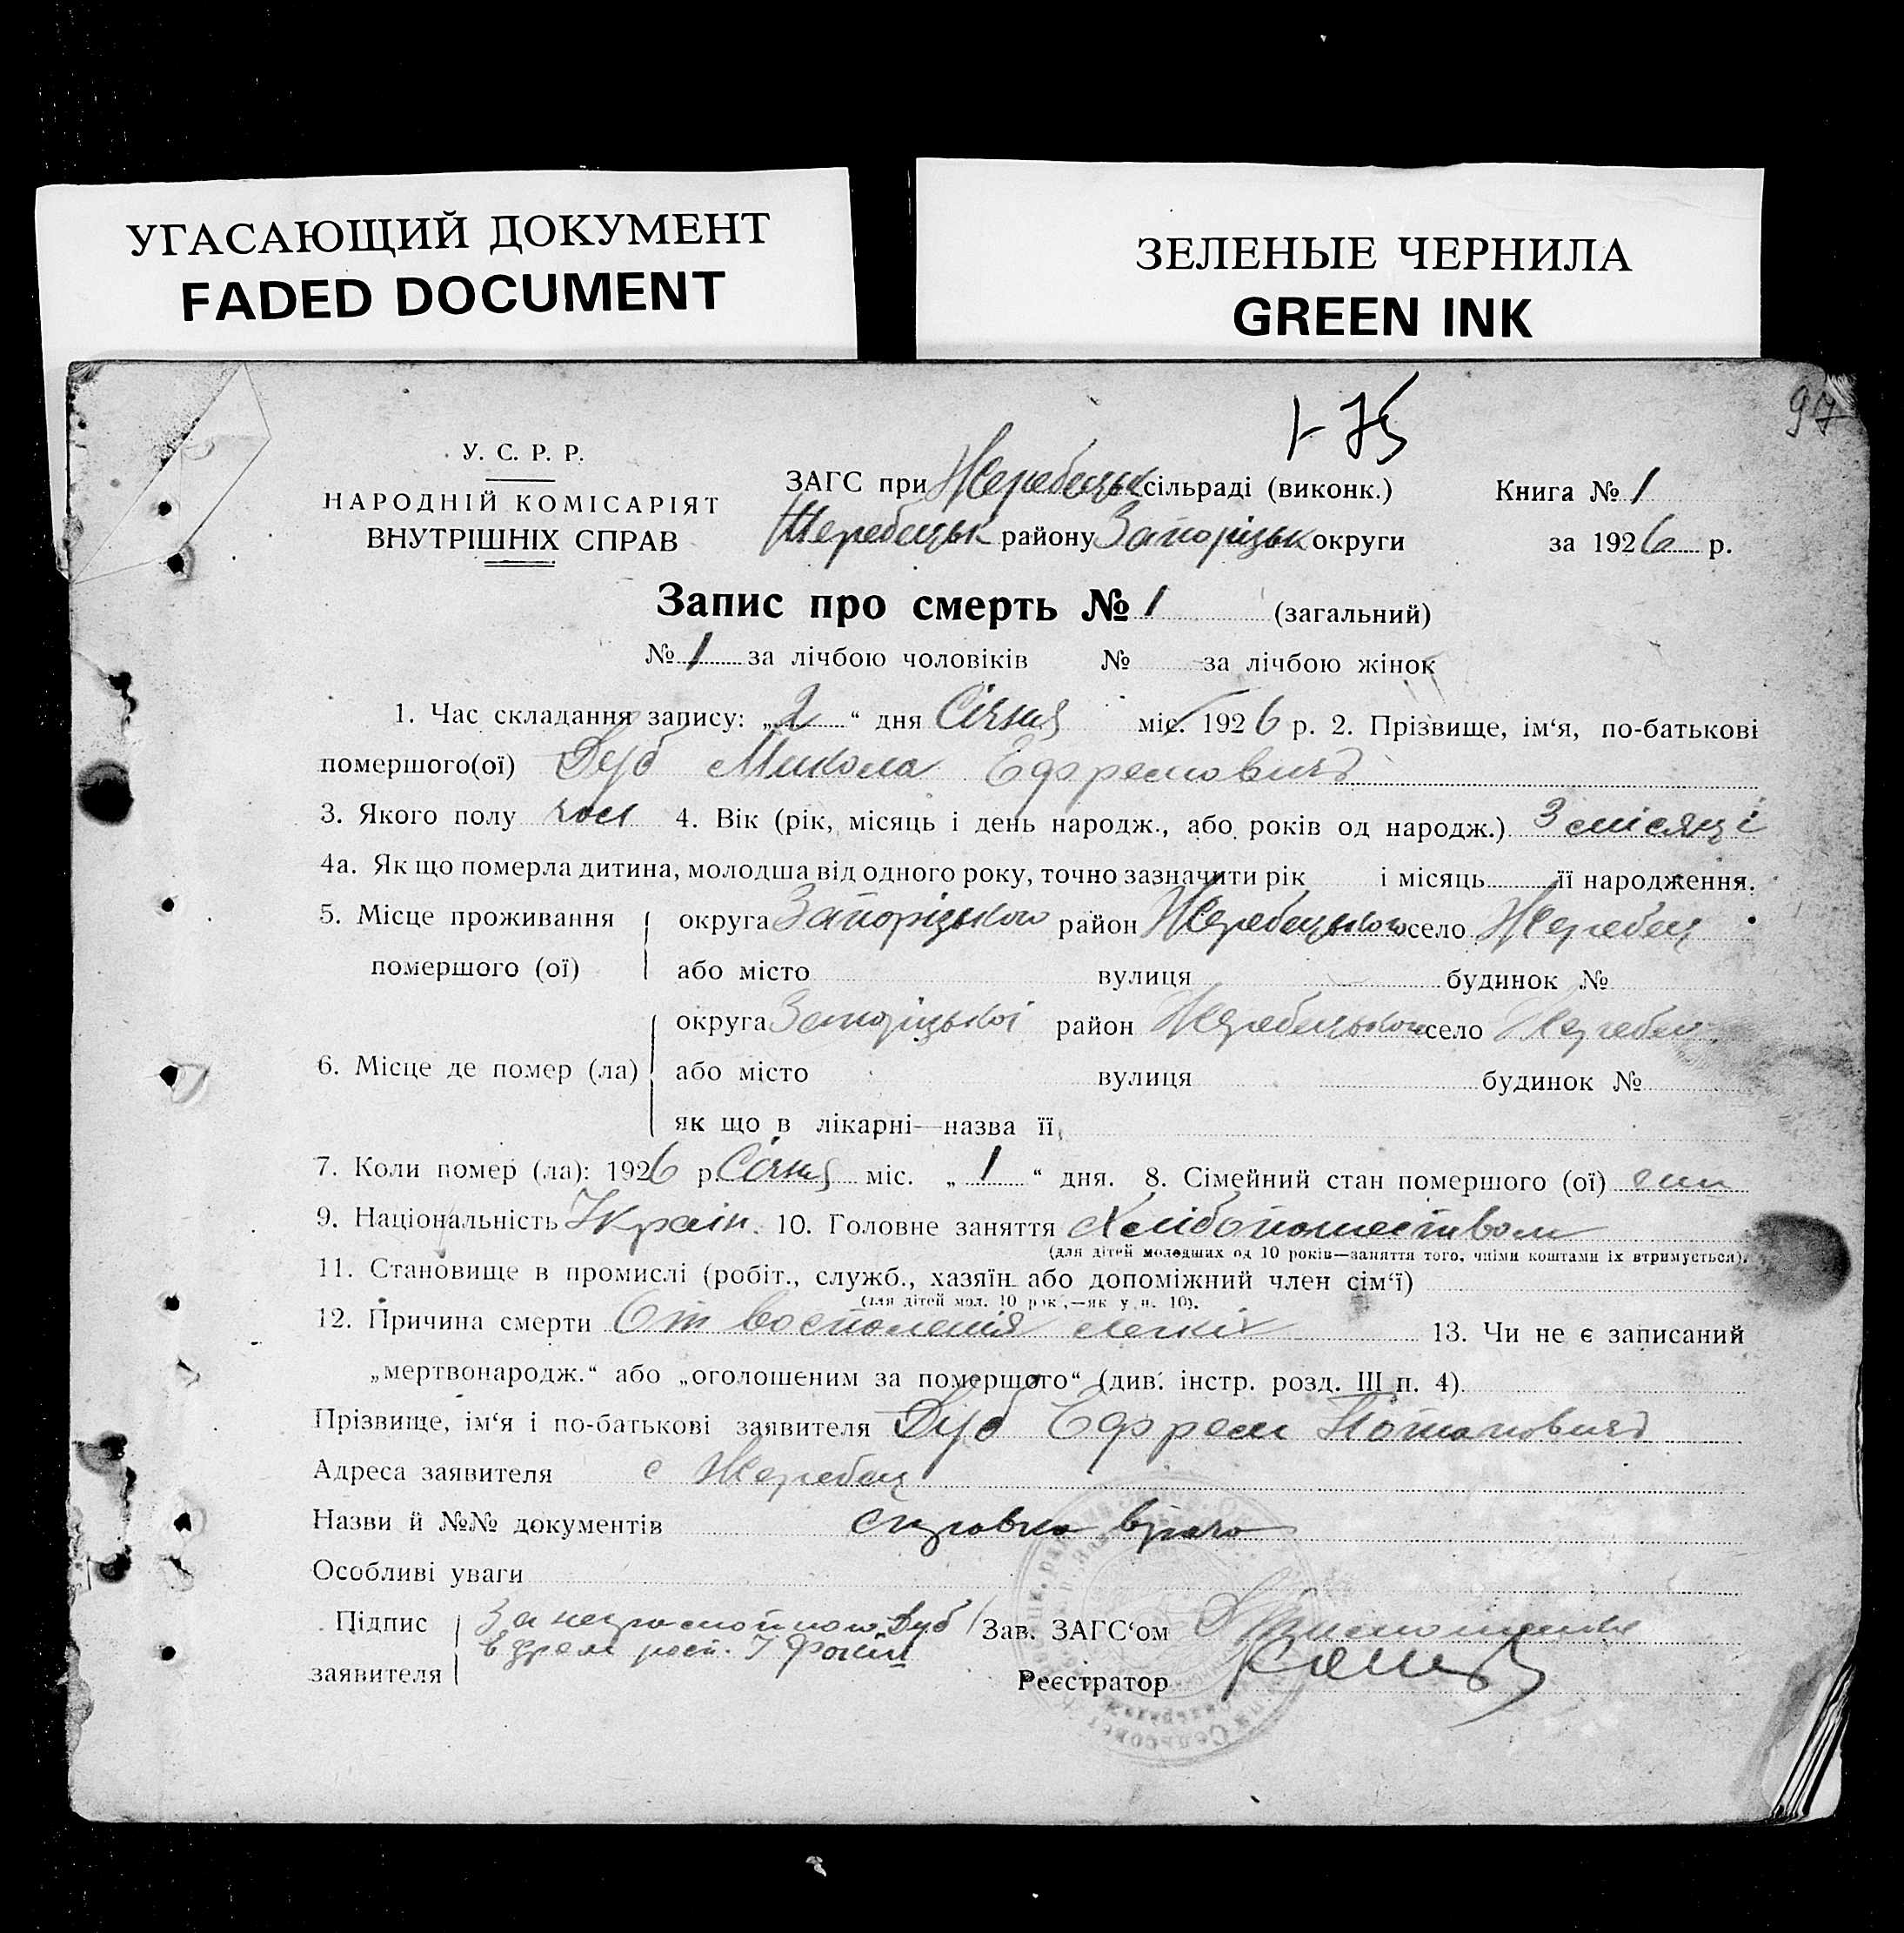 УГАСАЮЩИЙ ДОКУМЕНТ
FADED DOCUMENT
ЗЕЛЕНЫЕ ЧЕРНИЛА
GREEN INK
1-75
97
У. С. Р. Р.
НАРОДНІЙ КОМІСАРІЯТ
ВНУТРІШНІХ СПРАВ
ЗАГС при Жеребецьк сільраді (виконк.)
Жеребецьк району Запоріцьк округи
Книга № 1
за 1926 р.
Запис про смерть № 1 (загальний)
№ 1 за лічбою чоловіків № за лічбою жінок
1. Час складання запису: „2“ дня Січня міс. 1926 р. 2. Прізвище, ім‘я, по-батькові
помершого(ої) Дуб Микола Ефремович
3. Якого полу чол 4. Вік (рік, місяць і день народж., або років од народж.) 3 місяці
4а. Як що померла дитина, молодша від одного року, точно зазначити рік і місяць її народження.
5. Місце проживання помершого (ої)
округа Запоріцького район Жеребецького село Жеребец
або місто вулиця будинок №
6. Місце де помер (ла)
округа Запоріцької район Жеребецького село Жеребец
або місто вулиця будинок №
як що в лікарні—назва її
7. Коли помер (ла): 1926 р. Січня міс. „1“ дня. 8. Сімейний стан помершого (ої)
9. Національність Україн. 10. Головне заняття Хлібопашеством
(для дітей молодших од 10 років—заняття того, чніми коштами їх втримується).
11. Становище в промислі (робіт., служб., хазяїн або допоміжний член сім‘ї)
(для дітей мол. 10 рок.,—як у п. 10).
12. Причина смерти От воспаленія легкіх 13. Чи не є записаний
„мертвонародж.“ або „оголошеним за помершого“ (див. інстр. розд. III п. 4)
Прізвище, ім‘я і по-батькові заявителя Дуб Ефрем Потапович
Адреса заявителя с Жеребец
Назви й №№ документів справка врача
Особливі уваги
Підпис заявителя
За неграмотного Дуб
Ефрем росп.
Зав. ЗАГС‘ом
Реєстратор